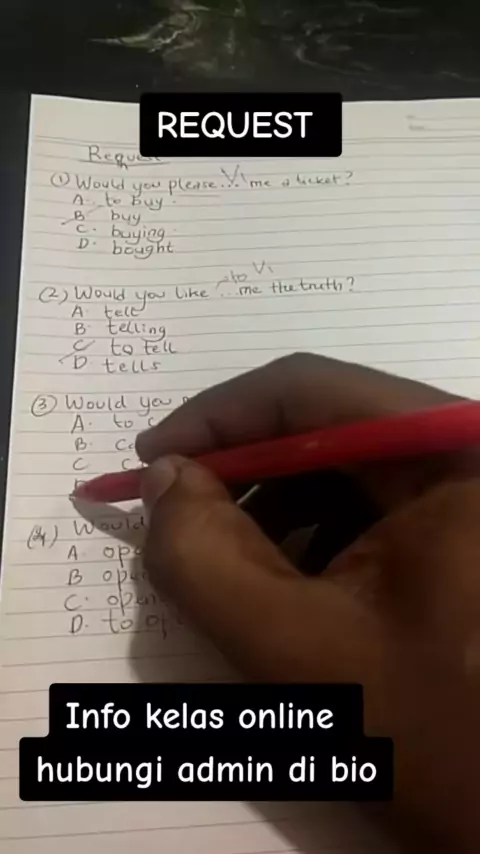 REQUEST
Request
(1) Would you please ... me a ticket?
V1
A. to buy
B buy
C. buying
D. bought
(2) Would you like ... me the truth?
to V1
A. tell
B. telling
C to tell
D. tells
(3) Would you
A. to
B.
C
(4) Would
A. ope
B ope
C. open
D. to op
Info kelas online
hubungi admin di bio